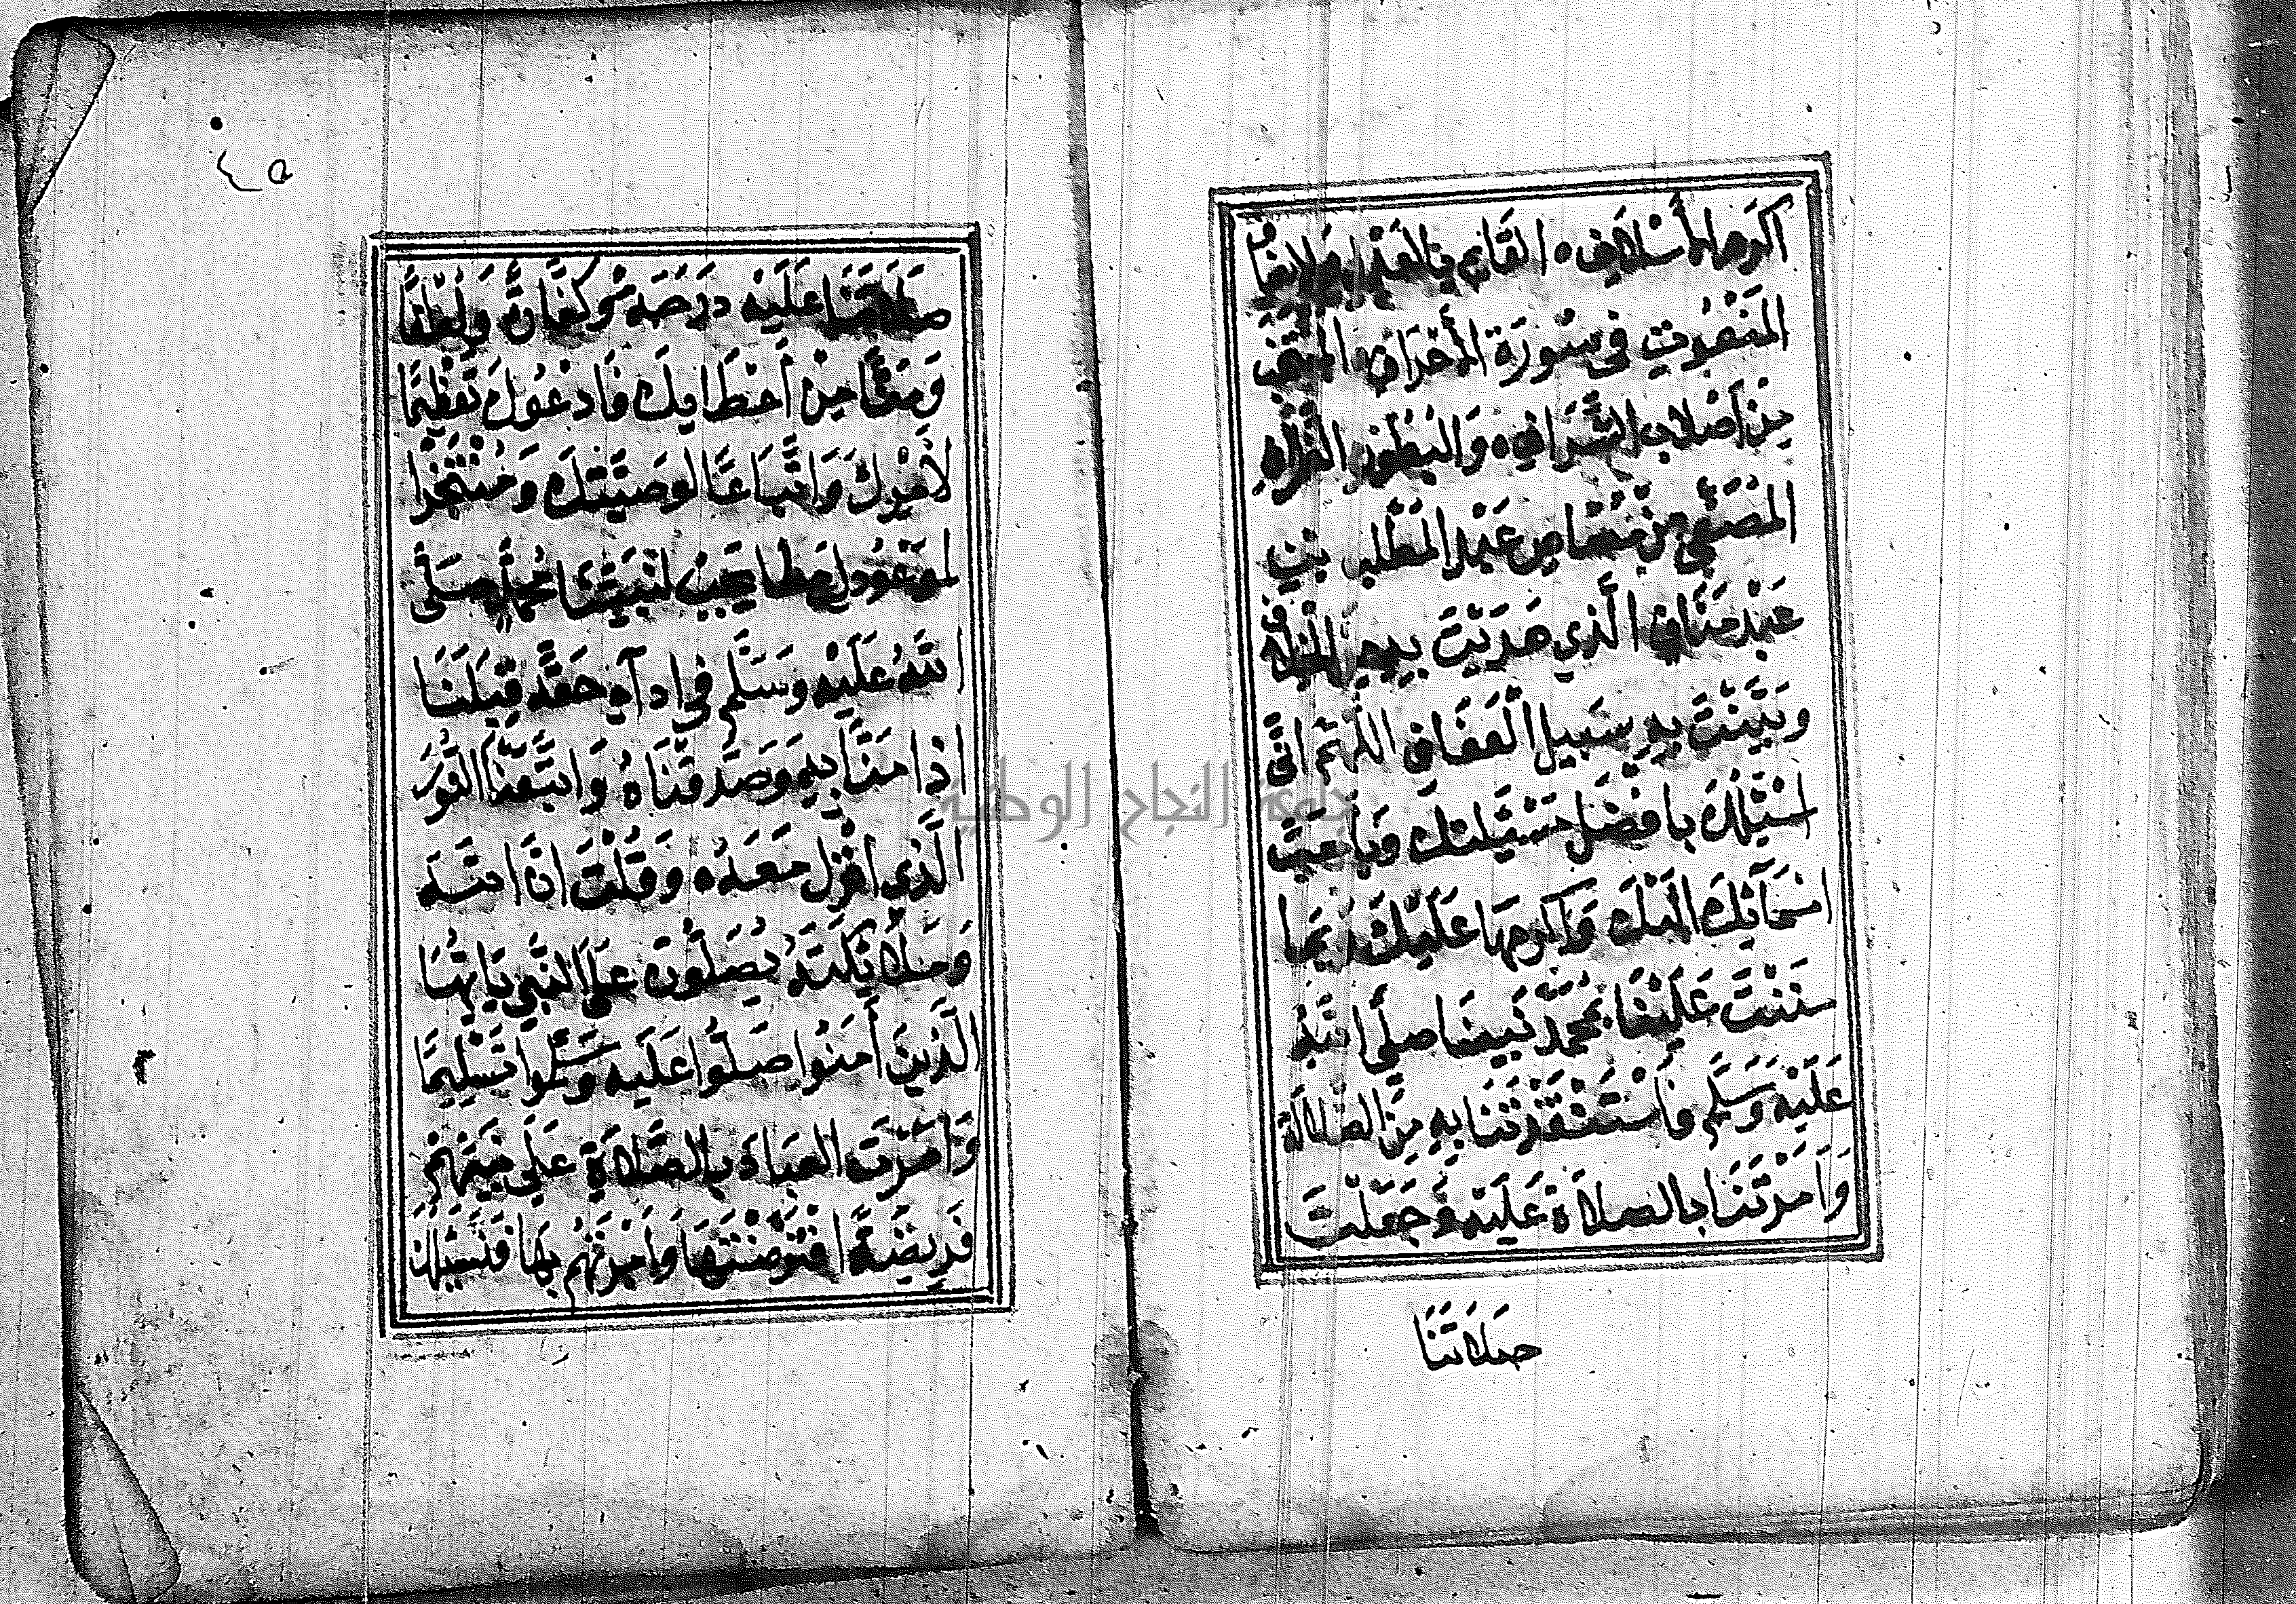 اكرمها أسلافه القائم بالعدل والانصاف
المنعوت في سورة الأعراف المنتخب
من أصلاب الشراف والبطون الظراف
المصفى من مصاص عبد المطلب بن
عبد مناف الذي هديت به من الخلاف
وبينت به سبيل العفاف اللهم اني
اسئلك بافضل مسئلتك وباحب
اسمائك اليك واكرمها عليك وبما
مننت علينا بمحمد نبينا صلى الله
عليه وسلم فاستنقذتنا به من الضلالة
وامرتنا بالصلاة عليه وجعلت
صلاتنا
صلاتنا عليه درجة وكفارة ولطفا
ومنا من اعطايك فادعوك تعظيما
لامرك واتباعا لوصيتك ومنتجزا
لموعودك لما يجب لنبينا محمد صلى
الله عليه وسلم في اداء حقه قبلنا
اذ امنا به وصدقناه واتبعنا النور
الذي انزل معه وقلت ان الله
وملائكته يصلون على النبي يايها
الذين أمنوا صلوا عليه وسلموا تسليما
وامرت العباد بالصلاة على نبيهم
فريضة افترضتها وامرتهم بها فنسئلك
جامعة النجاح الوطنية